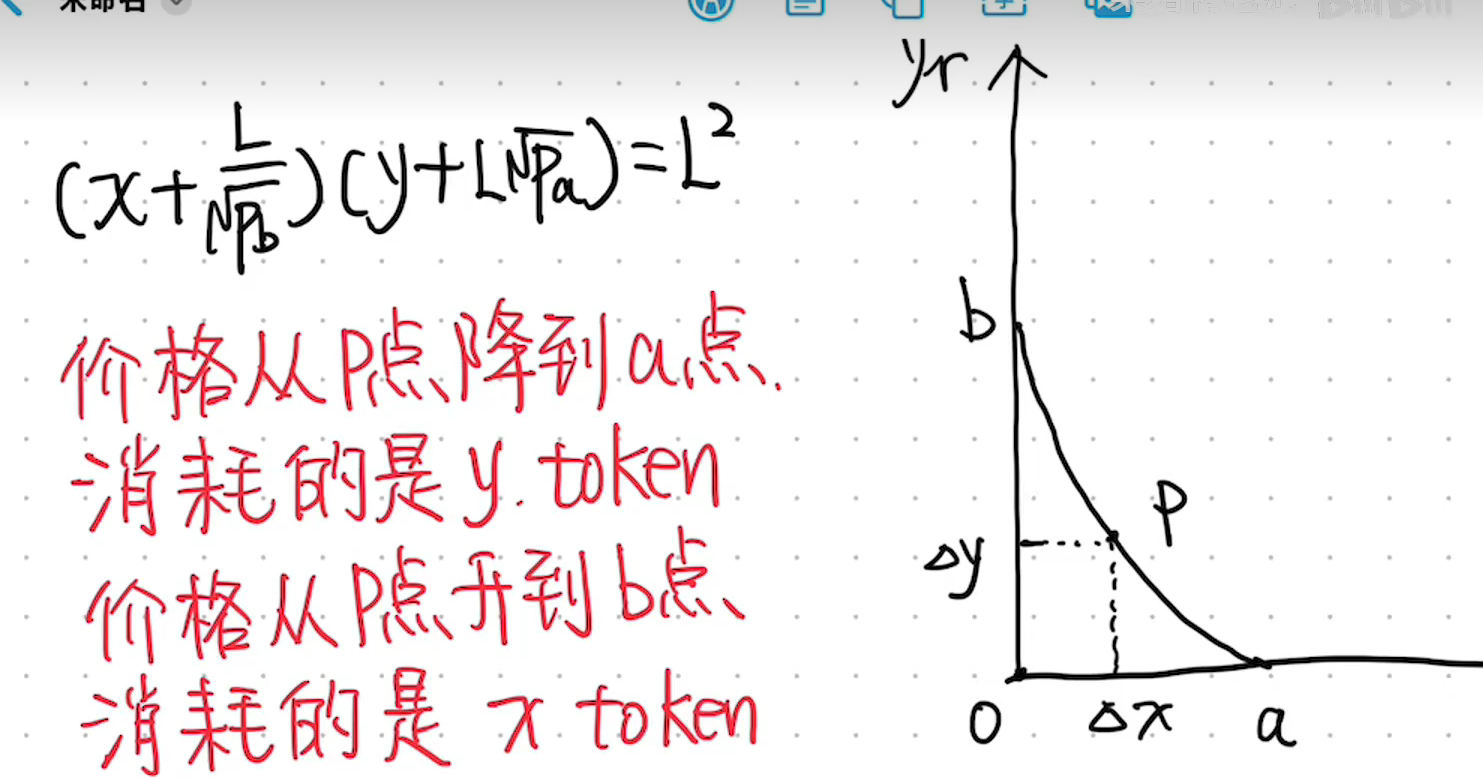 未命名
(x+L/√Pb)(y+L√Pa)=L²
价格从P点降到a点.
消耗的是y.token
价格从P点升到b点
消耗的是 x token
yr
b
P
Δy
0
Δx
a